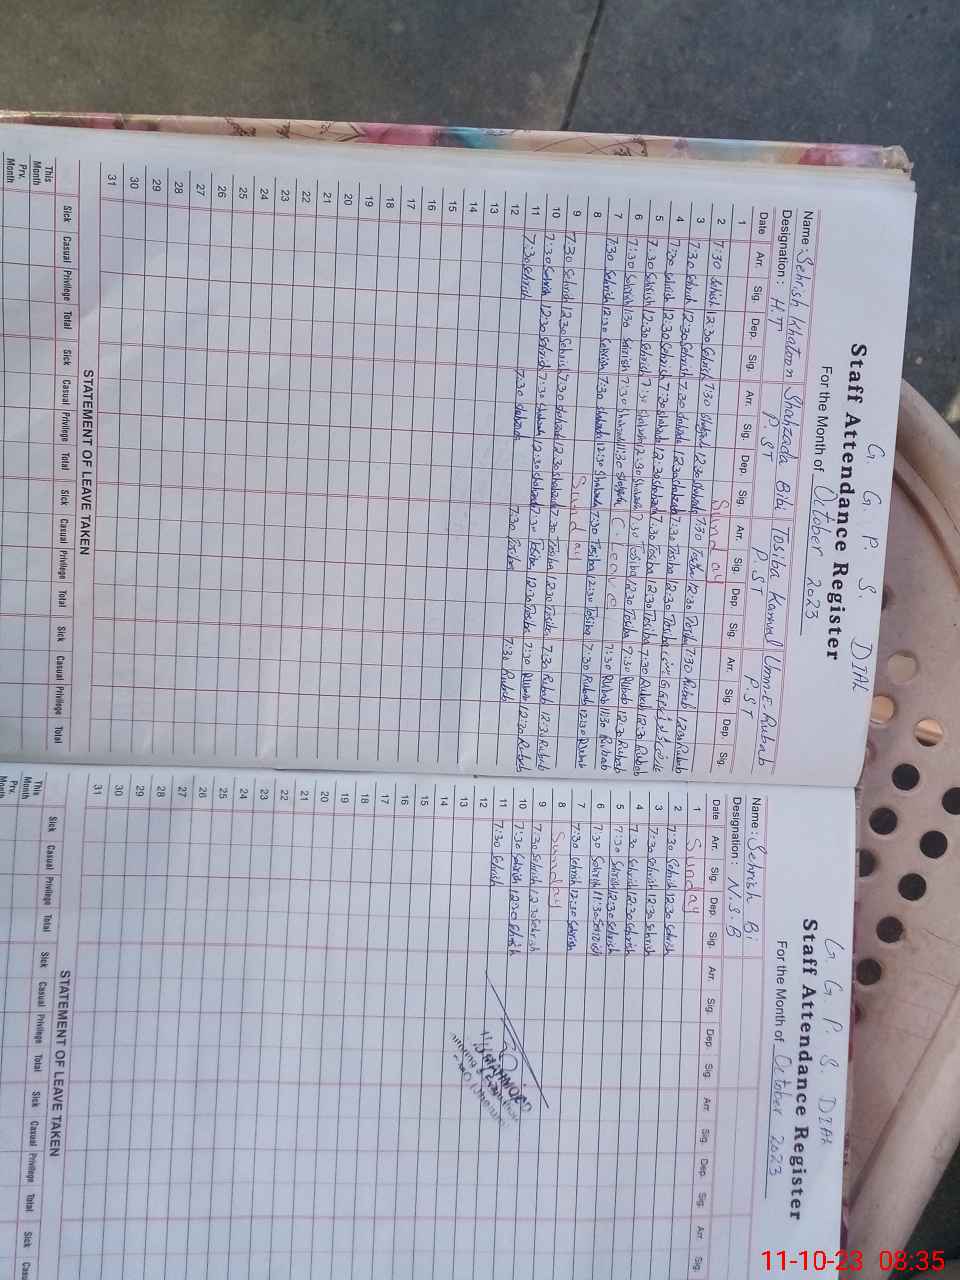 G. G. P. S. DIAL
Staff Attendance Register
For the Month of October 2023
Name: Sehrish Khatoon Shahzada Bibi Tosiba Kanwal Umm-E-Rubab
Designation: H.T P.ST P.ST P.ST
Date Arr. Sig. Dep. Sig. Arr. Sig. Dep. Sig. Arr. Sig. Dep. Sig. Arr. Sig. Dep. Sig.
1 Sunday
2 7:30 Sehrish 12:30 Sehrish 7:30 Shahzada 12:30 Shahzada 7:30 Tosiba 12:30 Tosiba 7:30 Rubab 12:30 Rubab
3 7:30 Sehrish 12:30 Sehrish 7:30 Shahzada 12:30 Shahzada 7:30 Tosiba 12:30 Tosiba
4 7:30 Sehrish 12:30 Sehrish 7:30 Shahzada 12:30 Shahzada 7:30 Tosiba 12:30 Tosiba 7:30 Rubab 12:30 Rubab
5 7:30 Sehrish 12:30 Sehrish 7:30 Shahzada 12:30 Shahzada 7:30 Tosiba 12:30 Tosiba 7:30 Rubab 12:30 Rubab
6 7:30 Sehrish 11:30 Sehrish 7:30 Shahzada 11:30 Shahzada C. Leave 7:30 Rubab 11:30 Rubab
7 7:30 Sehrish 12:30 Sehrish 7:30 Shahzada 12:30 Shahzada 7:30 Tosiba 12:30 Tosiba 7:30 Rubab 12:30 Rubab
8 Sunday
9 7:30 Sehrish 12:30 Sehrish 7:30 Shahzada 12:30 Shahzada 7:30 Tosiba 12:30 Tosiba 7:30 Rubab 12:30 Rubab
10 7:30 Sehrish 12:30 Sehrish 7:30 Shahzada 12:30 Shahzada 7:30 Tosiba 12:30 Tosiba 7:30 Rubab 12:30 Rubab
11 7:30 Sehrish 7:30 Shahzada 7:30 Tosiba 7:30 Rubab
12
13
14
15
16
17
18
19
20
21
22
23
24
25
26
27
28
29
30
31
STATEMENT OF LEAVE TAKEN
Sick Casual Privilege Total Sick Casual Privilege Total Sick Casual Privilege Total Sick Casual Privilege Total
This Month
Prv. Month
G. G. P. S. DIAL
Staff Attendance Register
For the Month of October 2023
Name: Sehrish Bi
Designation: N.S.B
Date Arr. Sig. Dep. Sig. Arr. Sig. Dep. Sig. Arr. Sig. Dep. Sig. Arr. Sig.
1 Sunday
2 7:30 Sehrish 12:30 Sehrish
3 7:30 Sehrish 12:30 Sehrish
4 7:30 Sehrish 12:30 Sehrish
5 7:30 Sehrish 12:30 Sehrish
6 7:30 Sehrish 11:30 Sehrish
7 7:30 Sehrish 12:30 Sehrish
8 Sunday
9 7:30 Sehrish 12:30 Sehrish
10 7:30 Sehrish 12:30 Sehrish
11 7:30 Sehrish
12
13
14
15
16
17
18
19
20
21
22
23
24
25
26
27
28
29
30
31
STATEMENT OF LEAVE TAKEN
Sick Casual Privilege Total Sick Casual Privilege Total Sick Casual Privilege Total Sick
This Month
Prv. Month
11-10-23 08:35